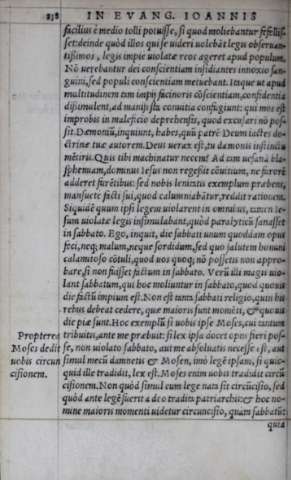 238 IN EVANG. IOANNIS
facilius è medio tolli potuisse, si quod moliebantur fefellis⸗
set: deinde quòd illos qui se uideri uolebãt legis obseruan⸗
tissimos, legis impie uiolatæ reos ageret apud populum.
Nõ uerebantur dei conscientiam insidiantes innoxio san⸗
guini, sed populi conscientiam metuebant. Itaque ut apud
multitudinem tam impij facinoris cõscientiam, confidentia
dissimulent, ad manifesta conuitia confugiunt: qui mos est
improbis in maleficio deprehensis, quod excusari nõ pos⸗
sit. Dæmoniũ, inquiunt, habes, quù patrẽ Deum iactes do⸗
ctrinæ tuæ autorem. Deus uerax est, tu dæmonis instinctu
mẽtiris. Quis tibi machinatur necem? Ad tam uesanã bla⸗
sphemiam, dominus Iesus non regessit cõuitium, ne furorẽ
adderet furẽtibus: sed nobis lenitatis exemplum præbens,
mansuete facti sui, quod calumniabãtur, reddit rationem.
Siquidẽ quum ipsi legem uiolarent in omnibus, tamen Ie⸗
sum uiolatæ legis insimulabant, quòd paralyticũ sanasset
in sabbato. Ego, inquit, die sabbati unum quoddam opus
feci, neq; malum, neque sordidum, sed quo salutem homini
calamitoso cõtuli, quod uos quoq; nõ possetis non appro⸗
bare, si non fuisset factum in sabbato. Verũ illi magis uio⸗
lant sabbatum, qui hoc moliuntur in sabbato, quod quouis
die factũ impium est. Non est tanta sabbati religio, quin hu
rebus debeat cedere, quæ maioris sunt momẽti, & quouis
die pia sunt. Hoc exemplũ si uobis ipse Moses, cui tantum
Propterea tribuitis, ante me præbuit: si lex ipsa docet opus fieri pos⸗
Moses dedit se, non uiolato sabbato, aut me absoluatis necesse est, aut
uobis circun simul mecũ damnetis & Mosen, imò legẽ ipsam, si quic⸗
cisionem. quid ille tradidit, lex est. Moses enim uobis tradidit circũ
cisionem. Non quòd simul cum lege nata sit circũcisio, sed
quòd ante legẽ fuerit a deo tradita patriarchis: & hoc no⸗
mine maioris momenti uidetur circuncisio, quàm sabbatũ:
quia